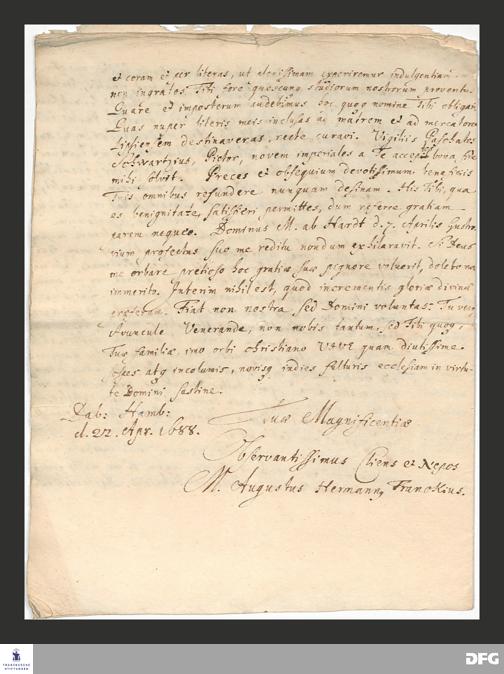 et coram et per literas, ut plenissimam experiremur indulgentiam
non ingratos Tibi fore quoscunq studiorum nostrorum proventus.
Quare et imposterum audebimus hoc quoq nomine Tibi obligari.
Quas nuper literis meis inclusas ad matrem et ad mercatorem
Lipsiensem destinaveras, recte curavi. Vigiliis Paschatos
Schwartzius, Pictor, novem imperiales a Te accepit
mihi Preces et obsequium devotissimum beneficiis
Tuis omnibus refundere nunquam desinam. His Tibi, qua
es benignitate, satisfieri permittes, dum referre gratiam
parem nequeo. Dominus M. ab Hardt d. 7. Aprilis Gustro-
vium profectus suo me reditu nondum exhilaravit. Si Deus
me orbare pretioso hoc gratiæ suæ pignore voluerit, doleto non
immerito. Interim nihil est, quod incrementis gloriæ divinæ
præferam. Fiat non nostra, sed Domini voluntas: Tu vero
Avuncule Venerande, non nobis tantum, sed Tibi quoq,
Tuæ familiæ, imo orbi christiano VIVE quam diutissime
sospes atq incolumis, novisq indies ecclesiam in virtu-
te Domini
Dab: Hamb:
d. 22. Apr. 1688.
Tuæ Magnificentiæ
Observantissimus Cliens et Nepos
M. Augustus Hermann, Franckius.
FRANCKESCHE
STIFTUNGEN
DFG